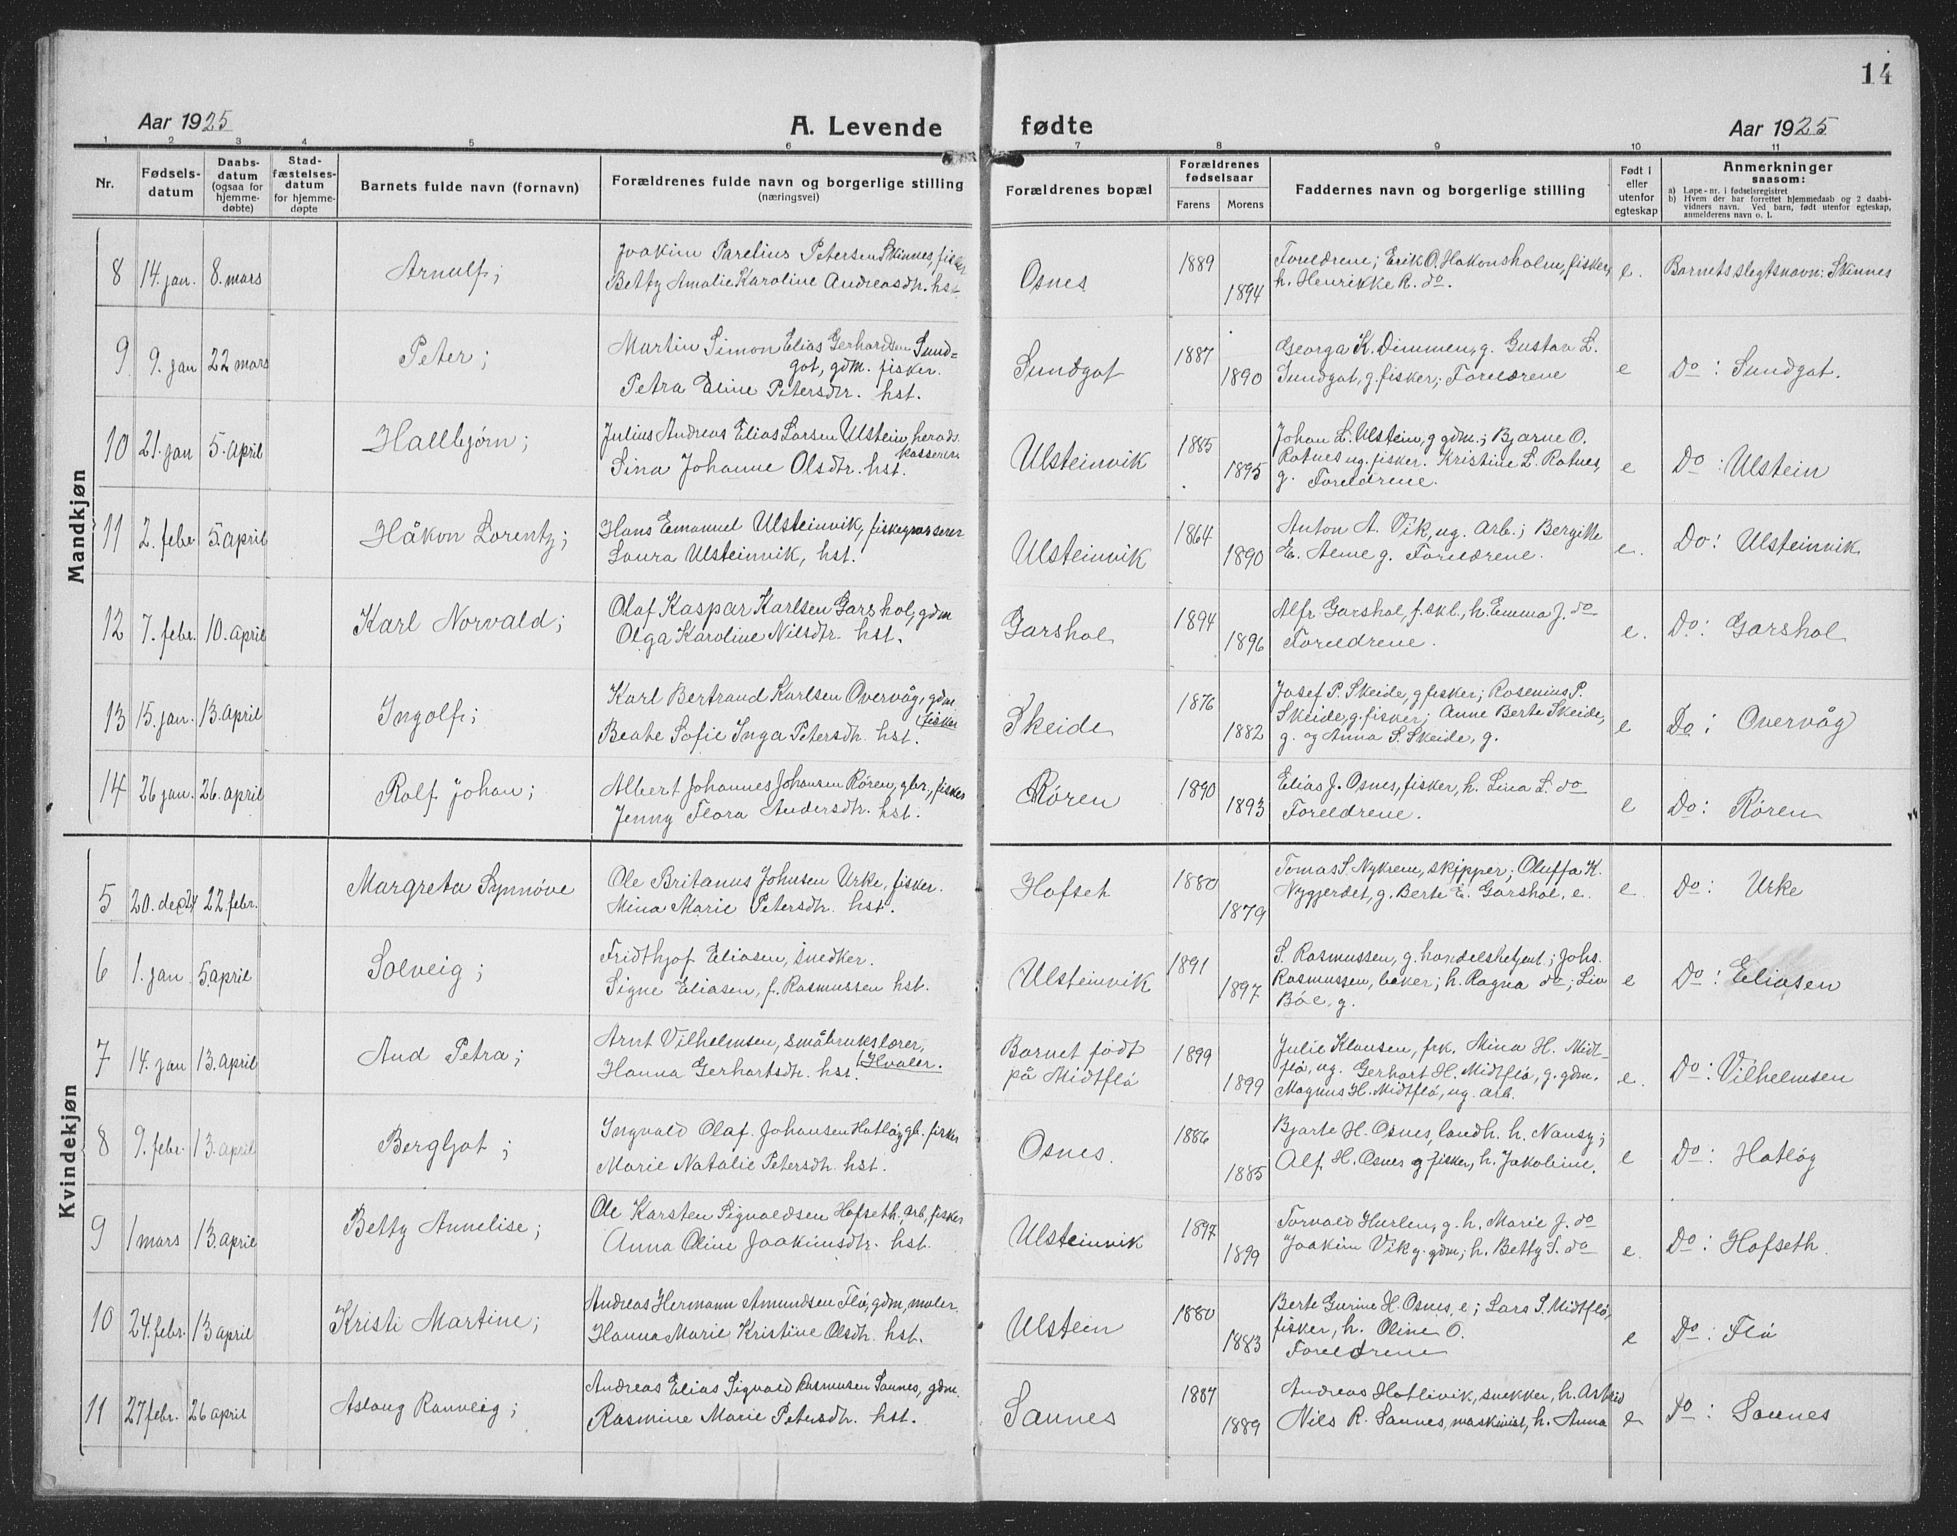 14
Aar 1925
A. Levende fødte
Aar 1925
1 2 3 4 5 6 7 8 9 10 11
Nr.
Fødsels-
datum
Daabs-
datum
(ogsaa for
hjemme-
døbte)
Stad-
fæstelses-
datum
for hjemme-
døpte
Barnets fulde navn (fornavn)
Forældrenes fulde navn og borgerlige stilling
(næringsvei)
Forældrenes bopæl
Forældrenes
fødselsaar
Farens Morens
Faddernes navn og borgerlige stilling
Født i
eller
utenfor
egteskap
Anmerkninger
saasom:
a) Løpe-nr. i fødselsregistret
b) Hvem der har forrettet hjemmedaab og 2 daabs-
vidners navn. Ved barn, født utenfor egteskap,
anmelderens navn o. l.
Mandkjøn
8 14. jan. 8. mars Arnulf;
Joakim Parelius Petersen Skinnes, fisker
Betty Amalie Karoline Andreasdr. hst.
Osnes 1889 1894
Foreldrene; Erik O. Hakonsholm, fisker,
h. Henrikke R. do.
e. Barnets slegtsnavn: Skinnes
9 9. jan 22 mars Peter;
Martin Simon Elias Gerhardsen Sund=
got, gdm. fisker.
Petra Eline Petersdtr. hst.
Sundgot 1887 1890
Georga K. Dimmen, g. Gustav L.
Sundgot, g. fisker; Foreldrene
e Do: Sundgot.
10 21. jan 5. april Hallbjørn;
Julius Andreas Elias Larsen Ulstein, herads
kasserer.
Sina Johanne Olsdtr. hst.
Ulsteinvik 1885 1895
Johan L. Ulstein, g gdm.; Bjarne O.
Ratnes ug. fisker. Kristine L. Ratnes,
g. Foreldrene.
e Do: Ulstein
11 2. febr 5. april Håkon Lorentz;
Hans Emanuel Ulsteinvik,
Laura Ulsteinvik, hst.
Ulsteinvik 1864 1890
Anton A. Vik, ug. arb.; Bergitte
E. Aeme g. Foreldrene.
e. Do: Ulsteinvik
12 7. febr. 10. april Karl Norvald;
Olaf Kaspar Karlsen Garshol, gdm
Olga Karoline Nilsdtr. hst.
Garshol 1894 1896
Alfr. Garshol, f.skl., h. Emma J. do
Foreldrene.
e. Do: Garshol
13 15. jan. 13. april Ingolf;
Karl Bertrand Karlsen Overvåg, gdm
fisker
Beate Sofie Inga Petersdtr. hst.
Skeide 1876 1882
Josef P. Skeide, g fisker; Rosenius P.
Skeide, g. fisker; Anne Berte Skeide,
g. og Anna S. Skeide, g.
e Do: Overvåg
14 26 jan. 26. april Rolf Johan;
Albert Johannes Johansen Røren, gbr., fisker
Jenny Flora Andersdtr. hst.
Røren 1890 1893
Elias J. Osnes, fisker, h. Lina L. do
Foreldrene.
e Do: Røren
Kvindekjøn
5 20. dec 24 22 febr. Margreta Synnøve
Ole Britanus Johnsen Urke, fisker.
Mina Marie Petersdtr. hst.
Hofset 1880 1879
Tomas S. Nykrem, skipper; Oluffa K.
Nygjerdet, g. Berte E. Garshol, e.
e. Do: Urke
6 1. jan 5 april Solveig;
Fridthjof Eliasen, snedker.
Signe Eliasen, f. Rasmussen hst.
Ulsteinvik 1891 1897
S. Rasmussen, g. handelsbetjent; Johs.
Rasmussen, baker; h. Ragna do; Liv
Böe, g.
e Do: Eliasen
7 14. jan 13. april Aud Petra;
Arnt Vilhelmsen, småbrukslærer,
Hvaler.
Hanna Gerhartsdtr. hst.
Barnet født
på Midtflø
1899 1899
Julie Klausen, frk. Mina H. Midt-
flø, ug. Gerhart H. Midtflø, g. gdm.
Magnus H. Midtflø, ug. arb.
e. Do: Vilhelmsen
8 9. febr. 13. april Bergljot;
Ingvald Olaf Johansen Hatløy gb. fisker
Marie Natalie Petersdtr. hst.
Osnes. 1886 1885
Bjarte H. Osnes, landh. h. Nansy;
Alf H. Osnes g fisker, h. Jakobine.
e Do: Hatløy
9 1 mars 13. april Betty Annelise;
Ole Karsten Sigvaldsen Hofseth, arb, fisker
Anna Oline Joakimsdtr. hst.
Ulsteinvik 1897 1899
Torvald Hurlen, g. h. Marie J. do
Joakim Vik g. gdm; h. Betty S. do
e. Do: Hofseth.
10 24. febr. 13 april Kristi Martine;
Andreas Hermann Amundsen Flø, gdm, maler.
Hanna Marie Kristine Olsdtr. hst.
Ulstein 1880 1883
Berte Gurine H. Osnes, e; Lars S. Midtflø,
fisker, h. Oline O.
Foreldrene
e Do: Flø
11 27 febr. 26 april Aslaug Ranveig;
Andreas Elias Sigvald Rasmussen Saunes, gdm.
Rasmine Marie Petersdtr. hst.
Saunes 1887 1889
Andreas Hatlivik, snekker, h.
Nils R. Saunes, maskinist, h. Anna
e Do: Saunes